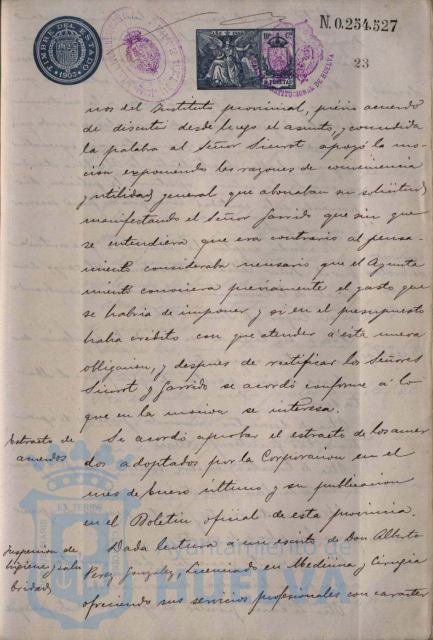 TIMBRE DEL ESTADO
1903
N. 0.254.527
23
nos del Instituto provincial, previo acuerdo
de discutir desde luego el asunto, y concedida
la palabra al Señor Siurot apoyó la mo-
cion exponiendo las razones de conveniencia
y utilidad general que abonaban su solicitud,
manifestando el Señor Garrido que sin que
se entendiera que era contrario al pensa-
miento consideraba necesario que el Ayunta
miento conociera previamente el gasto que
se habria de imponer y si en el presupuesto
habia credito con que atender á esta nueva
obligacion, y despues de rectificar los Señores
Siurot y Garrido se acordó conforme á lo
que en la mocion se interesa.
Extracto de
acuerdos
Se acordó aprobar el extracto de los acuer
dos adoptados por la Corporacion en el
mes de Enero último y su publicacion
en el Boletin oficial de esta provincia.
Inspeccion de
higiene y salu
bridad
Dada lectura á un escrito de Don Alberto
Perez Gonzalez, Licenciado en Medicina y Cirugia
ofreciendo sus servicios profesionales con caracter
Ayuntamiento de
HUELVA